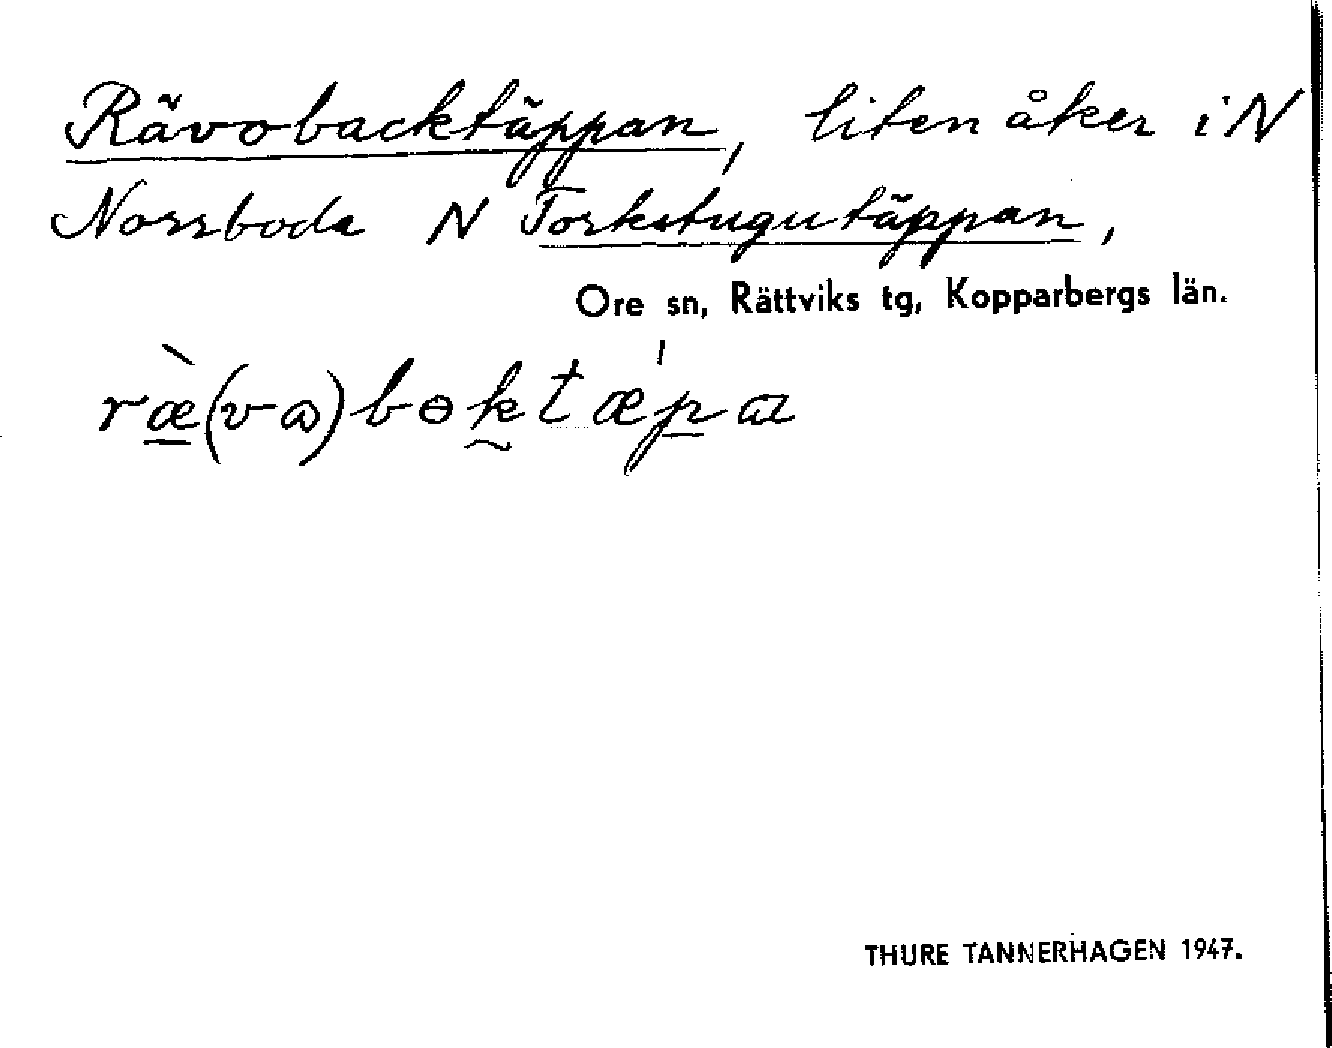 Rävobacktäppan, liten åker i N
Norrboda N Torkstugutäppan,
Ore sn, Rättviks tg, Kopparbergs län.
ræ̀(va)bɵktǽpa
THURE TANNERHAGEN 1947.